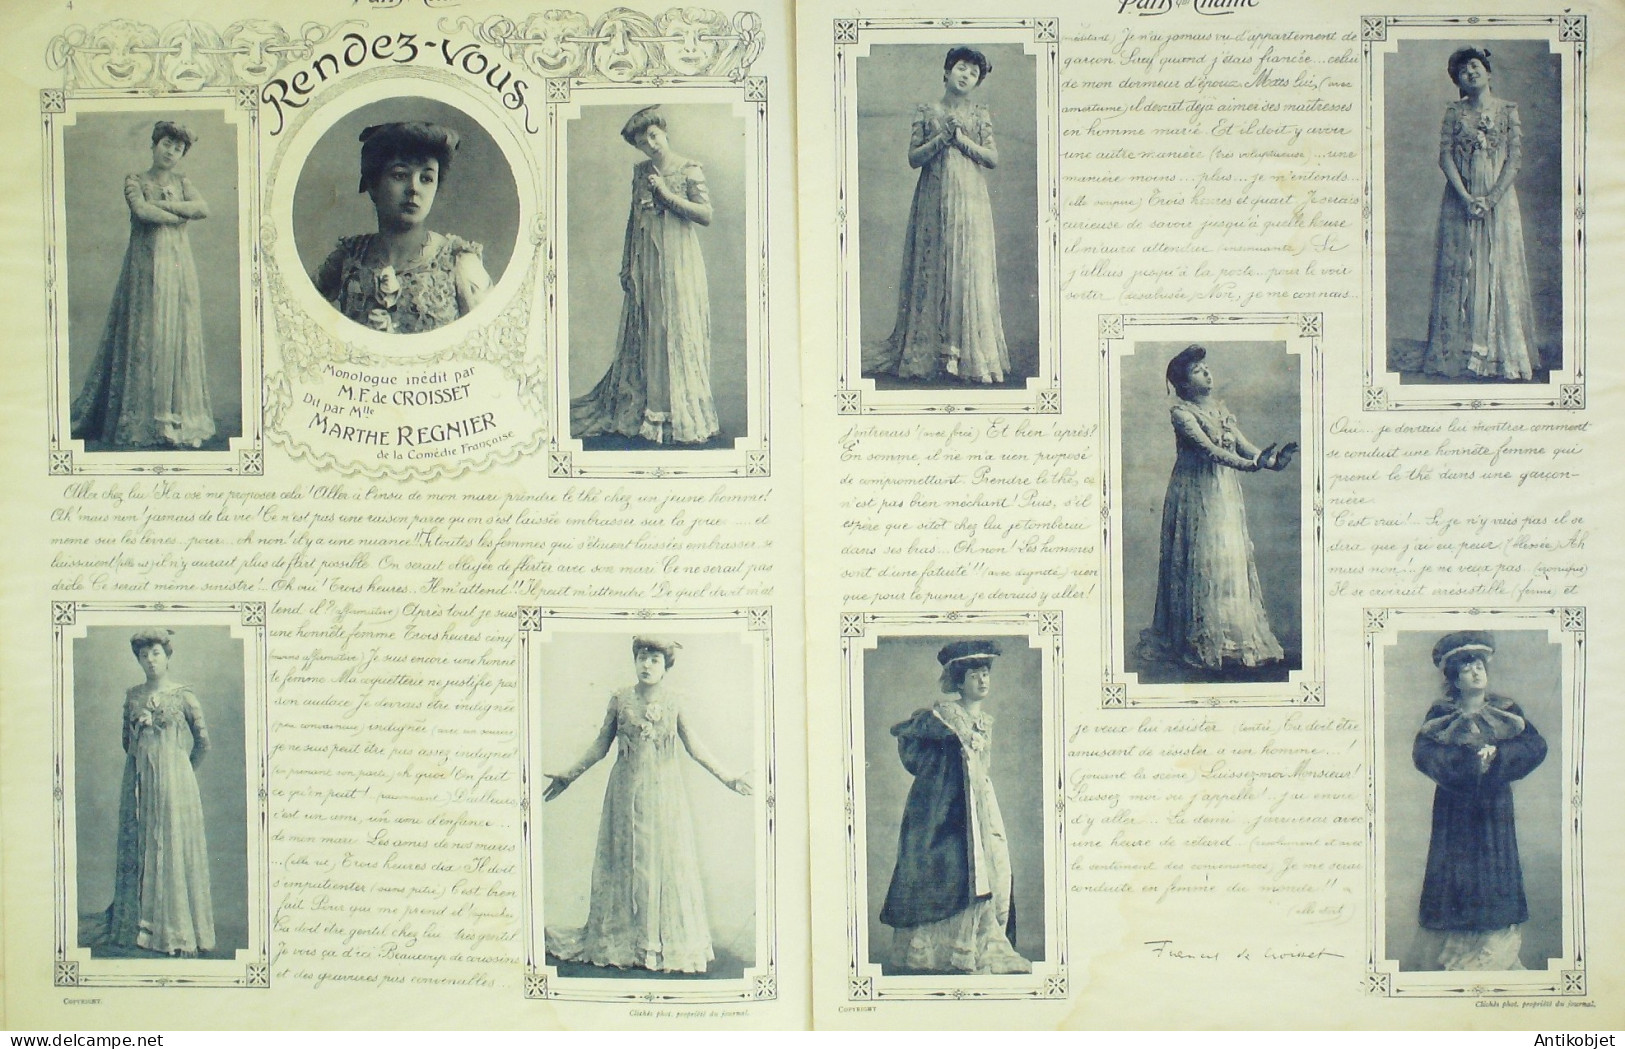 4
Paris qui Chante
Rendez-vous
Monologue inédit par
M. F. de CROISSET
Dit par Mlle
MARTHE REGNIER
de la Comédie Française
Aller chez lui ! Il a osé me proposer cela ! Aller à l'insu de mon mari prendre le thé chez un jeune homme !
Ah ! mais non ! jamais de la vie ! Ce n'est pas une raison parce qu'on s'est laissée embrasser sur la joue ..... et
même sur les lèvres.. pour... oh non ! il y a une nuance !! Si toutes les femmes qui s'étaient laissées embrasser se
laissaient (elle rit) il n'y aurait plus de flirt possible. On serait obligée de flirter avec son mari. Ce ne serait pas
drôle. Ce serait même sinistre !.. Oh oui ! Trois heures.. Il m'attend !! Il peut m'attendre ! De quel droit m'at
tend il ? (affirmative) Après tout je suis
une honnête femme. Trois heures cinq
(moins affirmative) Je suis encore une honnê
te femme. Ma coquetterie ne justifie pas
son audace. Je devrais être indignée
(peu convaincue) indignée (avec un soupir)
je ne suis peut être pas assez indignée !
(en prenant son parti) Ah quoi ! On fait
ce qu'on peut ! (raisonnant) D'ailleurs,
c'est un ami, un ami d'enfance...
de mon mari. Les amis de nos maris
... (elle rit) Trois heures dix. Il doit
s'impatienter (sans pitié) C'est bien
fait. Pour qui me prend il !
Ca doit être gentil chez lui.. très gentil.
Je vois ça d'ici. Beaucoup de coussins
et des gravures pas convenables...
COPYRIGHT.
Clichés phot. propriété du journal.
Paris qui Chante
(hésitant) Je n'ai jamais vu d'appartement de
garçon. Sauf quand j'étais fiancée... celui
de mon dormeur d'époux. Mais lui, (avec
amertume) il devait déjà aimer ses maîtresses
en homme marié. Et il doit y avoir
une autre manière (très voluptueuse) ... une
manière moins.... plus... je m'entends...
(elle soupire) Trois heures et quart. Je serais
curieuse de savoir jusqu'à quelle heure
il m'aura attendue (insinuante) Si
j'allais jusqu'à la porte... pour le voir
sortir (désabusée) Non, je me connais...
j'entrerais ! (avec force) Et bien ! après ?
En somme, il ne m'a rien proposé
de compromettant. Prendre le thé, ce
n'est pas bien méchant ! Puis, s'il
espère que sitôt chez lui je tomberai
dans ses bras... Oh non ! Les hommes
sont d'une fatuité !! (avec dignité) rien
que pour le punir je devrais y aller !
Oui.... je devrais lui montrer comment
se conduit une honnête femme qui
prend le thé dans une garçon-
nière.
C'est vrai !.. Si je n'y vais pas il se
dira que j'ai eu peur (blessée) Ah
mais non !.. je ne veux pas..
Il se croirait irrésistible (ferme) et
je veux lui résister (tentée) Ca doit être
amusant de résister à un homme...!
(jouant la scène) Laissez-moi Monsieur !
Laissez moi ou j'appelle !.. j'ai envie
d'y aller... La demi.. j'arriverai avec
une heure de retard.. (résolument et avec
le sentiment des convenances) Je me serai
conduite en femme du monde !!
(elle sort)
Francis de Croisset
COPYRIGHT
Clichés phot. propriété du journal.
Antikobjet